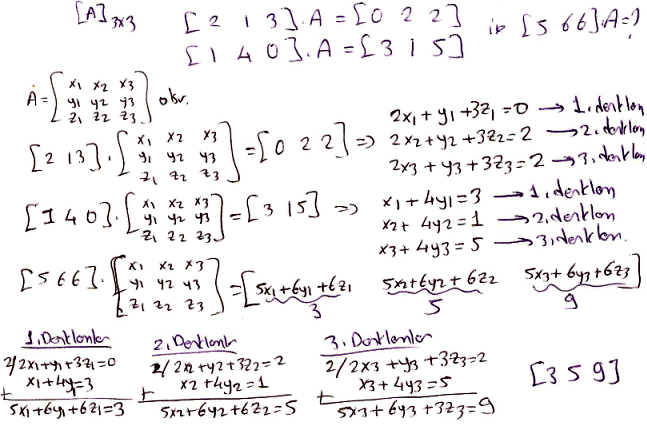 [A]3x3 [2 1 3].A = [0 2 2]
[1 4 0].A = [3 1 5] ise [5 6 6].A = ?
A = [x1 x2 x3
y1 y2 y3
z1 z2 z3] olsun.
[2 1 3].[x1 x2 x3
y1 y2 y3
z1 z2 z3] = [0 2 2] =>
2x1 + y1 + 3z1 = 0 → 1. denklem
2x2 + y2 + 3z2 = 2 → 2. denklem
2x3 + y3 + 3z3 = 2 → 3. denklem
[1 4 0].[x1 x2 x3
y1 y2 y3
z1 z2 z3] = [3 1 5] =>
x1 + 4y1 = 3 → 1. denklem
x2 + 4y2 = 1 → 2. denklem
x3 + 4y3 = 5 → 3. denklem.
[5 6 6].[x1 x2 x3
y1 y2 y3
z1 z2 z3] = [5x1 + 6y1 + 6z1 5x2 + 6y2 + 6z2 5x3 + 6y3 + 6z3]
3 5 9
1. Denklemler
2/ 2x1 + y1 + 3z1 = 0
x1 + 4y = 3
+
5x1 + 6y1 + 6z1 = 3
2. Denklemler
2/ 2x2 + y2 + 3z2 = 2
x2 + 4y2 = 1
+
5x2 + 6y2 + 6z2 = 5
3. Denklemler
2/ 2x3 + y3 + 3z3 = 2
x3 + 4y3 = 5
+
5x3 + 6y3 + 3z3 = 9
[3 5 9]